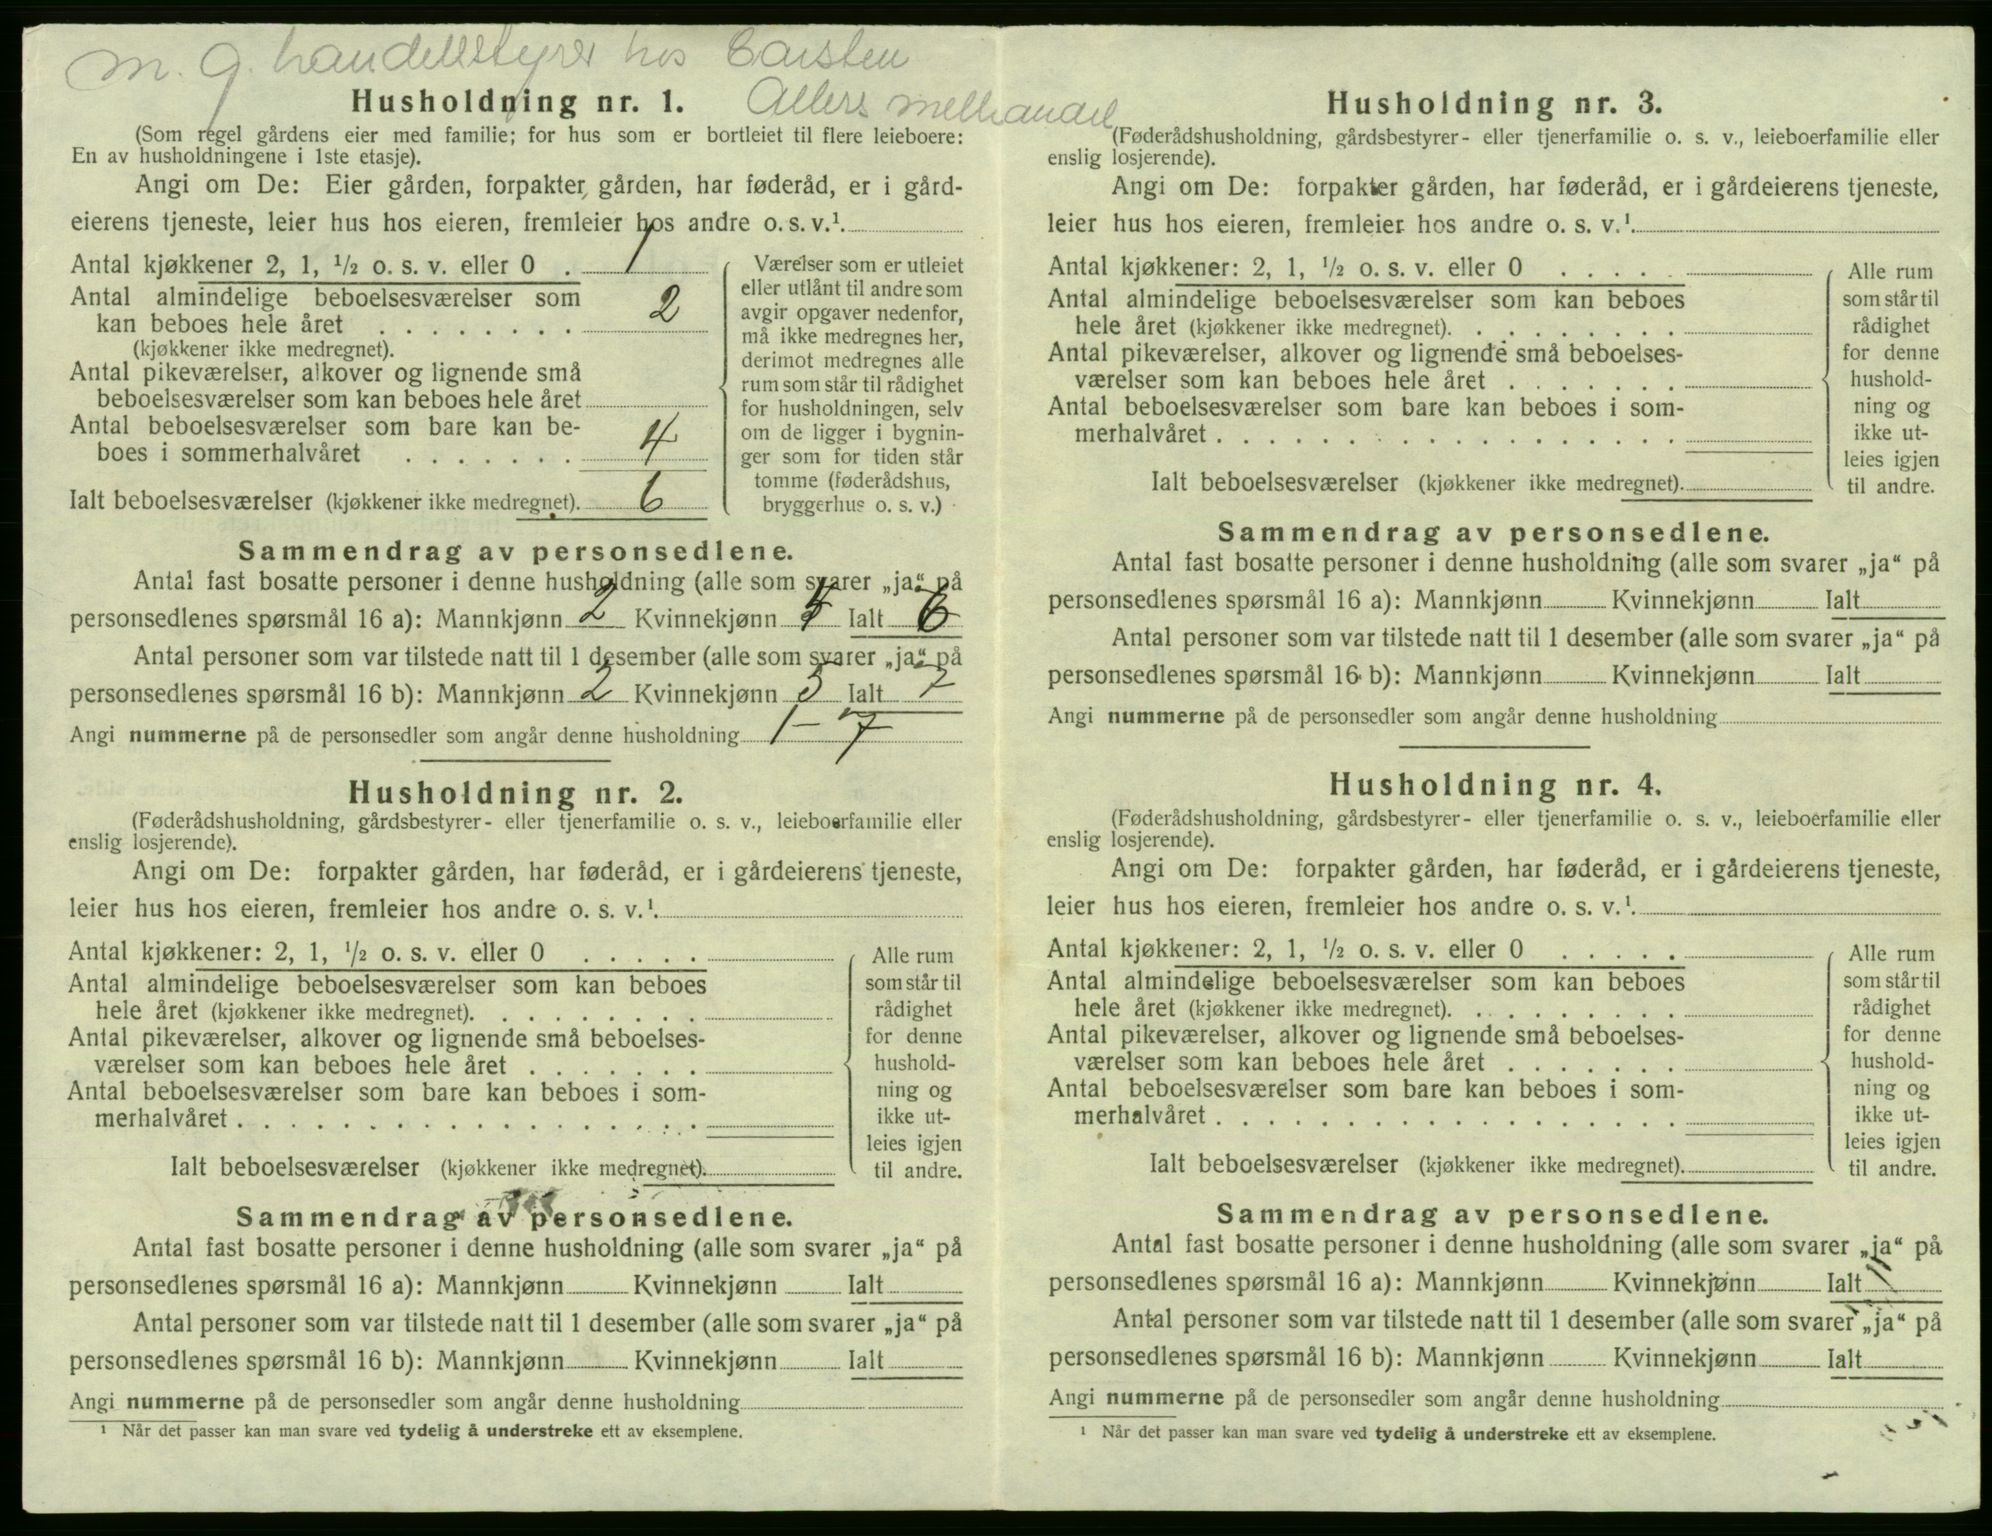 m. g. handelsstyrer hos Carsten
Allers melhandel
Husholdning nr. 1.
(Som regel gårdens eier med familie; for hus som er bortleiet til flere leieboere:
En av husholdningene i 1ste etasje).
Angi om De: Eier gården, forpakter gården, har føderåd, er i gård-
eierens tjeneste, leier hus hos eieren, fremleier hos andre o. s. v.¹
Antal kjøkkener 2, 1, ½ o. s. v. eller 0 . 1
Antal almindelige beboelsesværelser som
kan beboes hele året . . . . . . . . 2
(kjøkkener ikke medregnet).
Antal pikeværelser, alkover og lignende små
beboelsesværelser som kan beboes hele året
Antal beboelsesværelser som bare kan be-
boes i sommerhalvåret . . . . . . . 4
Ialt beboelsesværelser (kjøkkener ikke medregnet). 6
Værelser som er utleiet
eller utlånt til andre som
avgir opgaver nedenfor,
må ikke medregnes her,
derimot medregnes alle
rum som står til rådighet
for husholdningen, selv
om de ligger i bygnin-
ger som for tiden står
tomme (føderådshus,
bryggerhus o. s. v.)
Sammendrag av personsedlene.
Antal fast bosatte personer i denne husholdning (alle som svarer „ja“ på
personsedlenes spørsmål 16 a): Mannkjønn 2 Kvinnekjønn Ialt 6
Antal personer som var tilstede natt til 1 desember (alle som svarer „ja“ på
personsedlenes spørsmål 16 b): Mannkjønn 2 Kvinnekjønn 5 Ialt 7
Angi nummerne på de personsedler som angår denne husholdning 1-7
Husholdning nr. 2.
(Føderådshusholdning, gårdsbestyrer- eller tjenerfamilie o. s. v., leieboerfamilie eller
enslig losjerende).
Angi om De: forpakter gården, har føderåd, er i gårdeierens tjeneste,
leier hus hos eieren, fremleier hos andre o. s. v.¹
Antal kjøkkener: 2, 1, ½ o. s. v. eller 0 . . . . .
Antal almindelige beboelsesværelser som kan beboes
hele året (kjøkkener ikke medregnet). . . . . . . . .
Antal pikeværelser, alkover og lignende små beboelses-
værelser som kan beboes hele året . . . . . . .
Antal beboelsesværelser som bare kan beboes i som-
merhalvåret . . . . . . . . . . . . . . . . . .
Ialt beboelsesværelser (kjøkkener ikke medregnet).
Alle rum
som står til
rådighet
for denne
hushold-
ning og
ikke ut-
leies igjen
til andre.
Sammendrag av personsedlene.
Antal fast bosatte personer i denne husholdning (alle som svarer „ja“ på
personsedlenes spørsmål 16 a): Mannkjønn Kvinnekjønn Ialt
Antal personer som var tilstede natt til 1 desember (alle som svarer „ja“ på
personsedlenes spørsmål 16 b): Mannkjønn Kvinnekjønn Ialt
Angi nummerne på de personsedler som angår denne husholdning
¹ Når det passer kan man svare ved tydelig å understreke ett av eksemplene.
Husholdning nr. 3.
(Føderådshusholdning, gårdsbestyrer- eller tjenerfamilie o. s. v., leieboerfamilie eller
enslig losjerende).
Angi om De: forpakter gården, har føderåd, er i gårdeierens tjeneste,
leier hus hos eieren, fremleier hos andre o. s. v.¹
Antal kjøkkener: 2, 1, ½ o. s. v. eller 0 . . . . .
Antal almindelige beboelsesværelser som kan beboes
hele året (kjøkkener ikke medregnet). . . . . . . . .
Antal pikeværelser, alkover og lignende små beboelses-
værelser som kan beboes hele året . . . . . . .
Antal beboelsesværelser som bare kan beboes i som-
merhalvåret . . . . . . . . . . . . . . . . . .
Ialt beboelsesværelser (kjøkkener ikke medregnet).
Alle rum
som står til
rådighet
for denne
hushold-
ning og
ikke ut-
leies igjen
til andre.
Sammendrag av personsedlene.
Antal fast bosatte personer i denne husholdning (alle som svarer „ja“ på
personsedlenes spørsmål 16 a): Mannkjønn Kvinnekjønn Ialt
Antal personer som var tilstede natt til 1 desember (alle som svarer „ja“ på
personsedlenes spørsmål 16 b): Mannkjønn Kvinnekjønn Ialt
Angi nummerne på de personsedler som angår denne husholdning
Husholdning nr. 4.
(Føderådshusholdning, gårdsbestyrer- eller tjenerfamilie o. s. v., leieboerfamilie eller
enslig losjerende).
Angi om De: forpakter gården, har føderåd, er i gårdeierens tjeneste,
leier hus hos eieren, fremleier hos andre o. s. v.¹
Antal kjøkkener: 2, 1, ½ o. s. v. eller 0 . . . . .
Antal almindelige beboelsesværelser som kan beboes
hele året (kjøkkener ikke medregnet). . . . . . . . .
Antal pikeværelser, alkover og lignende små beboelses-
værelser som kan beboes hele året . . . . . . .
Antal beboelsesværelser som bare kan beboes i som-
merhalvåret . . . . . . . . . . . . . . . . . .
Ialt beboelsesværelser (kjøkkener ikke medregnet).
Alle rum
som står til
rådighet
for denne
hushold-
ning og
ikke ut-
leies igjen
til andre.
Sammendrag av personsedlene.
Antal fast bosatte personer i denne husholdning (alle som svarer „ja“ på
personsedlenes spørsmål 16 a): Mannkjønn Kvinnekjønn Ialt
Antal personer som var tilstede natt til 1 desember (alle som svarer „ja“ på
personsedlenes spørsmål 16 b): Mannkjønn Kvinnekjønn Ialt
Angi nummerne på de personsedler som angår denne husholdning
¹ Når det passer kan man svare ved tydelig å understreke ett av eksemplene.